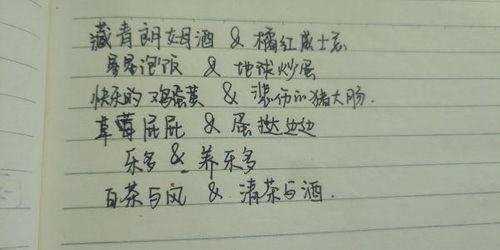 藏青朗姆酒 & 橘红威士忌
星星泡饭 & 地球炒蛋
快乐的鸡蛋黄 & 悲伤的猪大肠.
草莓屁屁 & 蛋挞边边
乐多 & 养乐多
白茶与风 & 清茶与酒.